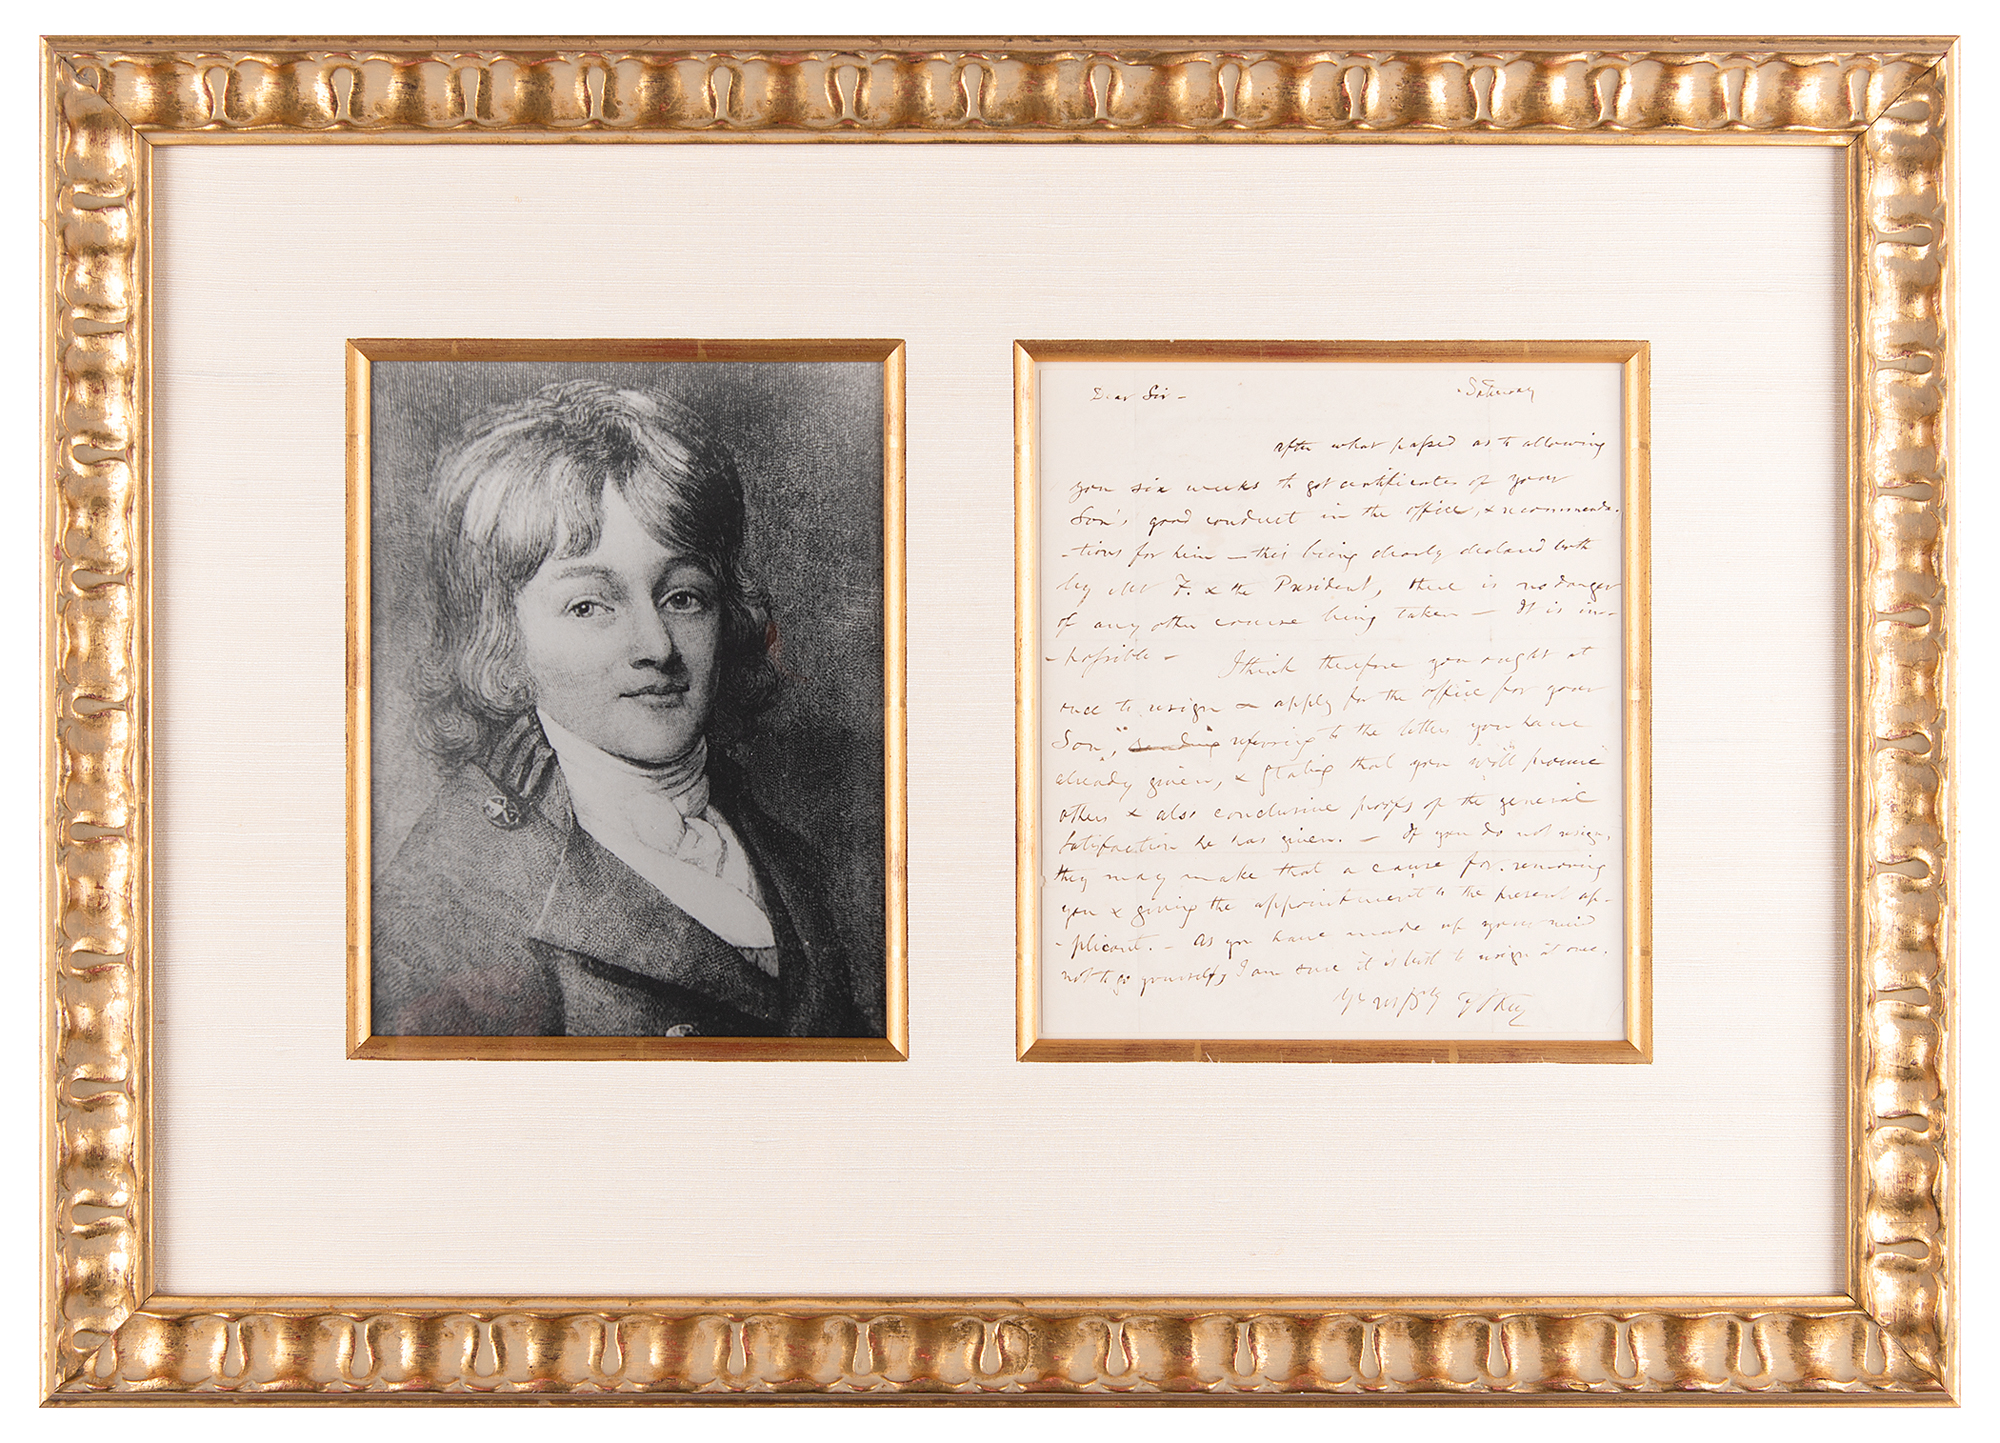 Dear Sir - Saturday
after what passed as to allowing
you six weeks to get certificates of your
Son's good conduct in the office, & recommenda-
-tions for him - this being clearly declared both
by Mr F. & the President, there is no danger
of any other course being taken - It is im-
-possible - I think therefore you ought at
once to resign & apply for the office for your
Son, sending referring to the letters you have
already given, & stating that you will procure
others & also conclusive proofs of the general
satisfaction he has given. - If you do not resign,
they may make that a cause for removing
you & giving the appointment to the present ap-
-plicant. - As you have made up your mind
not to go yourself, I am sure it is best to resign at once.
F S Key